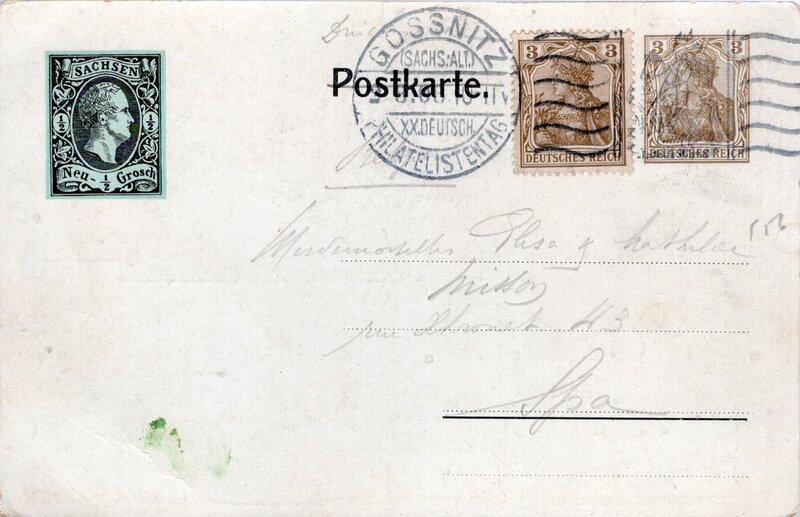 SACHSEN
½ ½
Neu- ½ Grosch
Postkarte.
GÖSSNITZ
(SACHS:ALT.)
XX.DEUTSCH.
PHILATELISTENTAG
3 3
DEUTSCHES REICH
3 3
DEUTSCHES REICH
Mesdemoiselles Elisa & Mathilde
Misson
rue 43
Spa